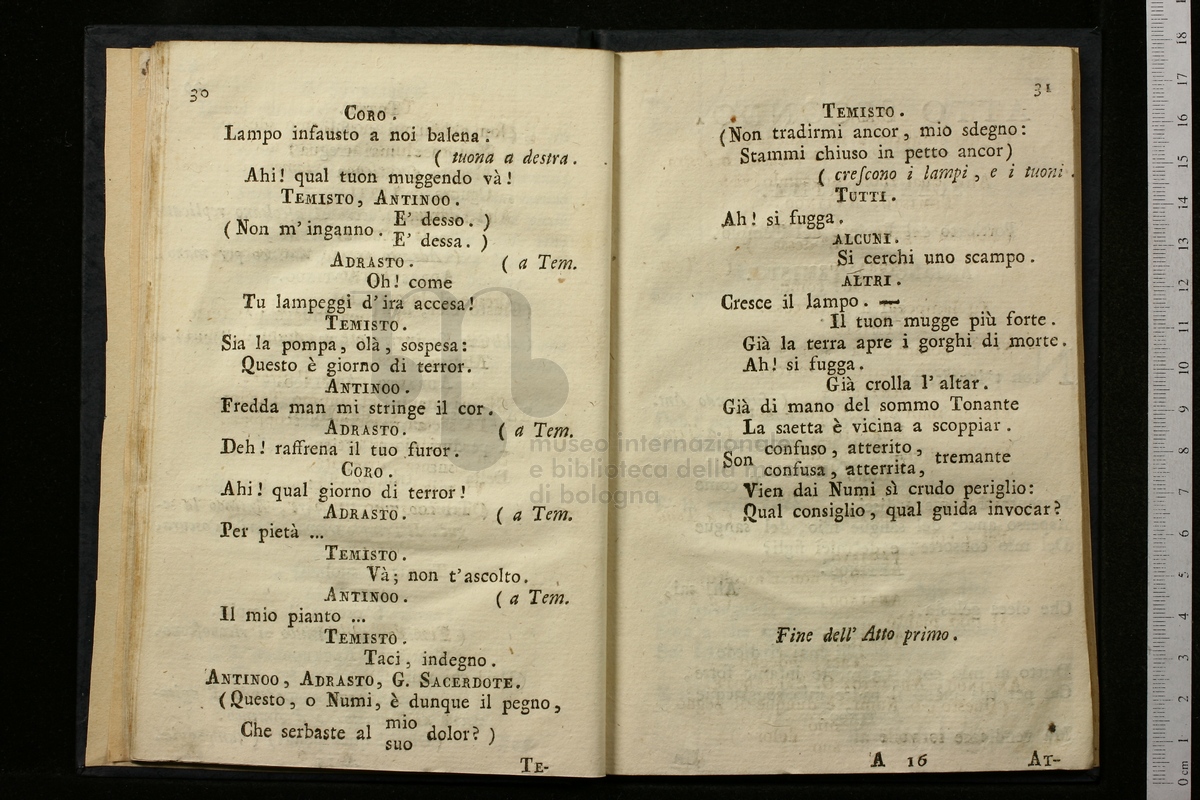 30
CORO.
Lampo infausto a noi balena.
( tuona a destra.
Ahi! qual tuon muggendo và!
TEMISTO, ANTINOO.
(Non m'inganno. E' desso. )
E' dessa. )
ADRASTO. ( a Tem.
Oh! come
Tu lampeggi d'ira accesa!
TEMISTO.
Sia la pompa, olà, sospesa:
Questo è giorno di terror.
ANTINOO.
Fredda man mi stringe il cor.
ADRASTO. ( a Tem.
Deh! raffrena il tuo furor.
CORO.
Ahi! qual giorno di terror!
ADRASTO. ( a Tem.
Per pietà ...
TEMISTO.
Và; non t'ascolto.
ANTINOO. ( a Tem.
Il mio pianto ...
TEMISTO.
Taci, indegno.
ANTINOO, ADRASTO, G. SACERDOTE.
(Questo, o Numi, è dunque il pegno,
Che serbaste al mio dolor? )
suo
TE-
31
TEMISTO.
(Non tradirmi ancor, mio sdegno:
Stammi chiuso in petto ancor)
( creſcono i lampi, e i tuoni.
TUTTI.
Ah! si fugga.
ALCUNI.
Si cerchi uno scampo.
ALTRI.
Cresce il lampo. —
Il tuon mugge più forte.
Già la terra apre i gorghi di morte.
Ah! si fugga.
Già crolla l'altar.
Già di mano del sommo Tonante
La saetta è vicina a scoppiar.
Son confuso, atterito, tremante
confusa, atterrita,
Vien dai Numi sì crudo periglio:
Qual consiglio, qual guida invocar?
Fine dell' Atto primo.
A 16
AT-
museo internazionale
e biblioteca della m
di bologna
0 cm 1 2 3 4 5 6 7 8 9 10 11 12 13 14 15 16 17 18